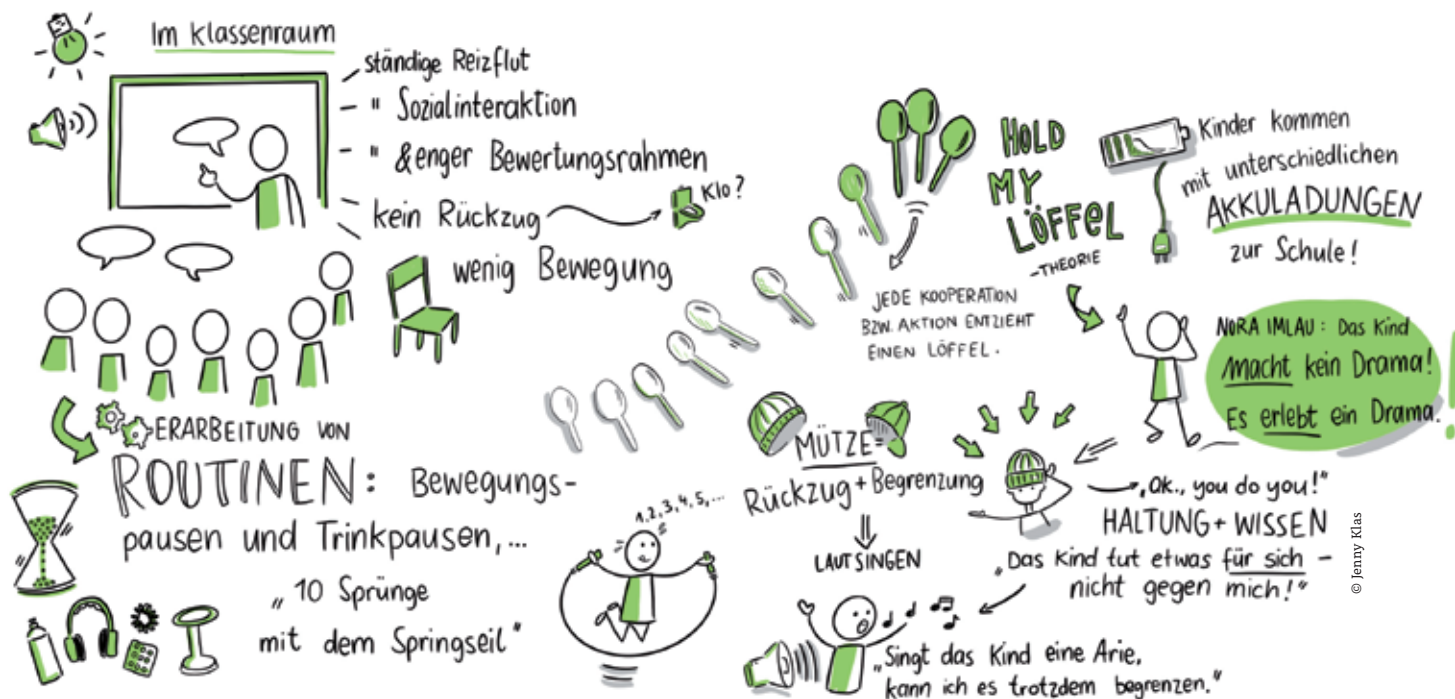 Im Klassenraum
ständige Reizflut
" Sozialinteraktion
" & enger Bewertungsrahmen
kein Rückzug
Klo?
wenig Bewegung
ERARBEITUNG VON
ROUTINEN: Bewegungs-
pausen und Trinkpausen,...
„10 Sprünge
mit dem Springseil"
1, 2, 3, 4, 5, ...
HOLD
MY
LÖFFEL
-THEORIE
JEDE KOOPERATION
BZW. AKTION ENTZIEHT
EINEN LÖFFEL.
Kinder kommen
mit unterschiedlichen
AKKULADUNGEN
zur Schule!
NORA IMLAU: Das Kind
macht kein Drama!
Es erlebt ein Drama.
!
MÜTZE=
Rückzug + Begrenzung
LAUT SINGEN
„Ok., you do you!"
HALTUNG + WISSEN
„Das Kind tut etwas für sich –
nicht gegen mich!"
„Singt das Kind eine Arie,
kann ich es trotzdem begrenzen."
© Jenny Klas